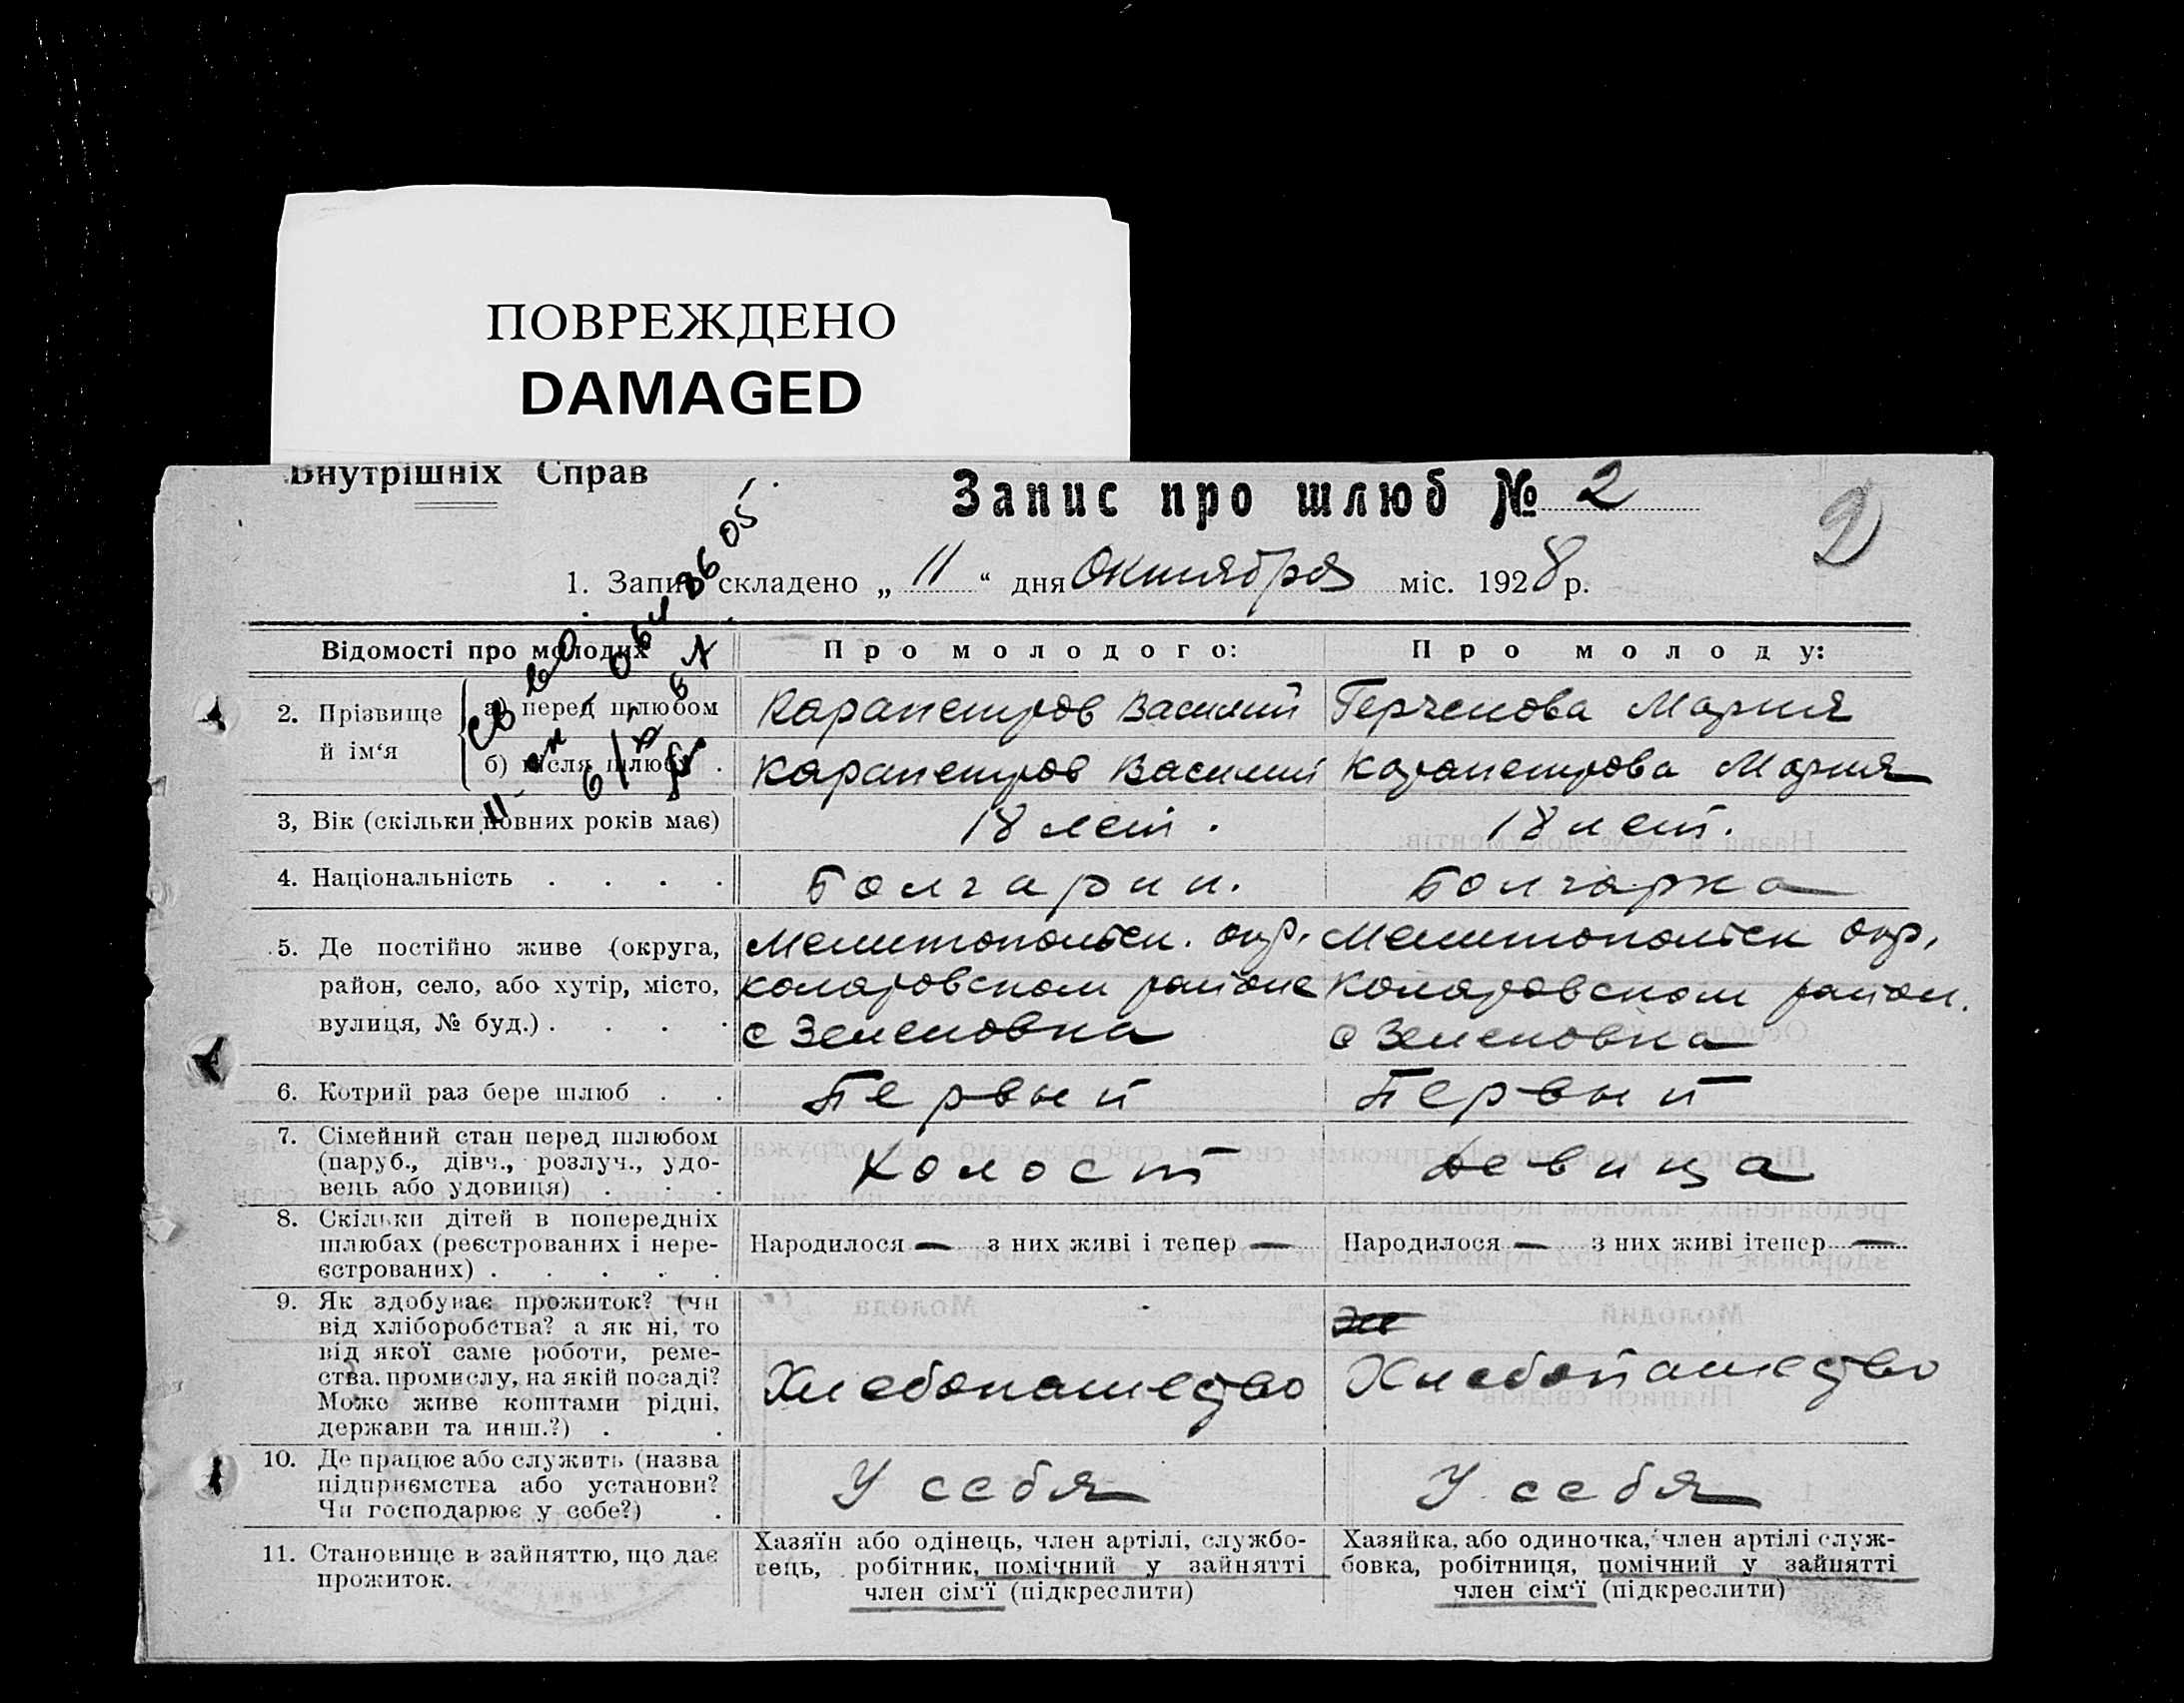 ПОВРЕЖДЕНО
DAMAGED
Внутрішніх Справ
Запис про шлюб № 2
2
1. Запис складено „ 11 “ дня Октября міс. 1928 р.
Відомості про молодих
Про молодого:
Про молоду:
2. Прізвище й ім‘я
а) перед шлюбом
Карапетров Василий
Герченова Мария
б) після шлюбу .
Карапетров Василий
Карапетрова Мария
3, Вік (скільки повних років має)
18 лет.
18 лет.
4. Національність . . . .
Болгарин.
Болгарка
5. Де постійно живе (округа,
район, село, або хутір, місто,
вулиця, № буд.) . . . .
Мелитопольск. окр.
Коларовском районе
с Зеленовка
Мелитопольск окр.
Коларовском район.
с Зеленовка
6. Котрий раз бере шлюб . .
Первый
Первый
7. Сімейний стан перед шлюбом
(паруб., дівч., розлуч., удо-
вець або удовиця) . . .
Холост
Девица
8. Скільки дітей в попередніх
шлюбах (реєстрованих і нере-
єстрованих) . . . . .
Народилося — з них живі і тепер —
Народилося — з них живі ітепер —
9. Як здобуває прожиток? (чи
від хліборобства? а як ні, то
від якої саме роботи, реме-
ства. промислу, на якій посаді?
Може живе коштами рідні,
держави та инш.?) . .
Хлебопашество
Хлебопашество
10. Де працює або служить (назва
підприємства або установи?
Чи господарює у себе?) .
У себя
У себя
11. Становище в зайняттю, що дає
прожиток.
Хазяїн або одінець, член артілі, службо-
вець, робітник, помічний у зайнятті
член сім‘ї (підкреслити)
Хазяйка, або одиночка, член артілі служ-
бовка, робітниця, помічний у зайнятті
член сім‘ї (підкреслити)